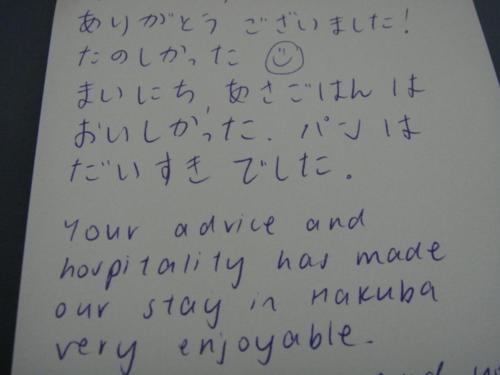 ありがとう ございました!
たのしかった
まいにち, あさごはん は
おいしかった. パン は
だいすき でした.
Your advice and
hospitality has made
our stay in Hakuba
very enjoyable.